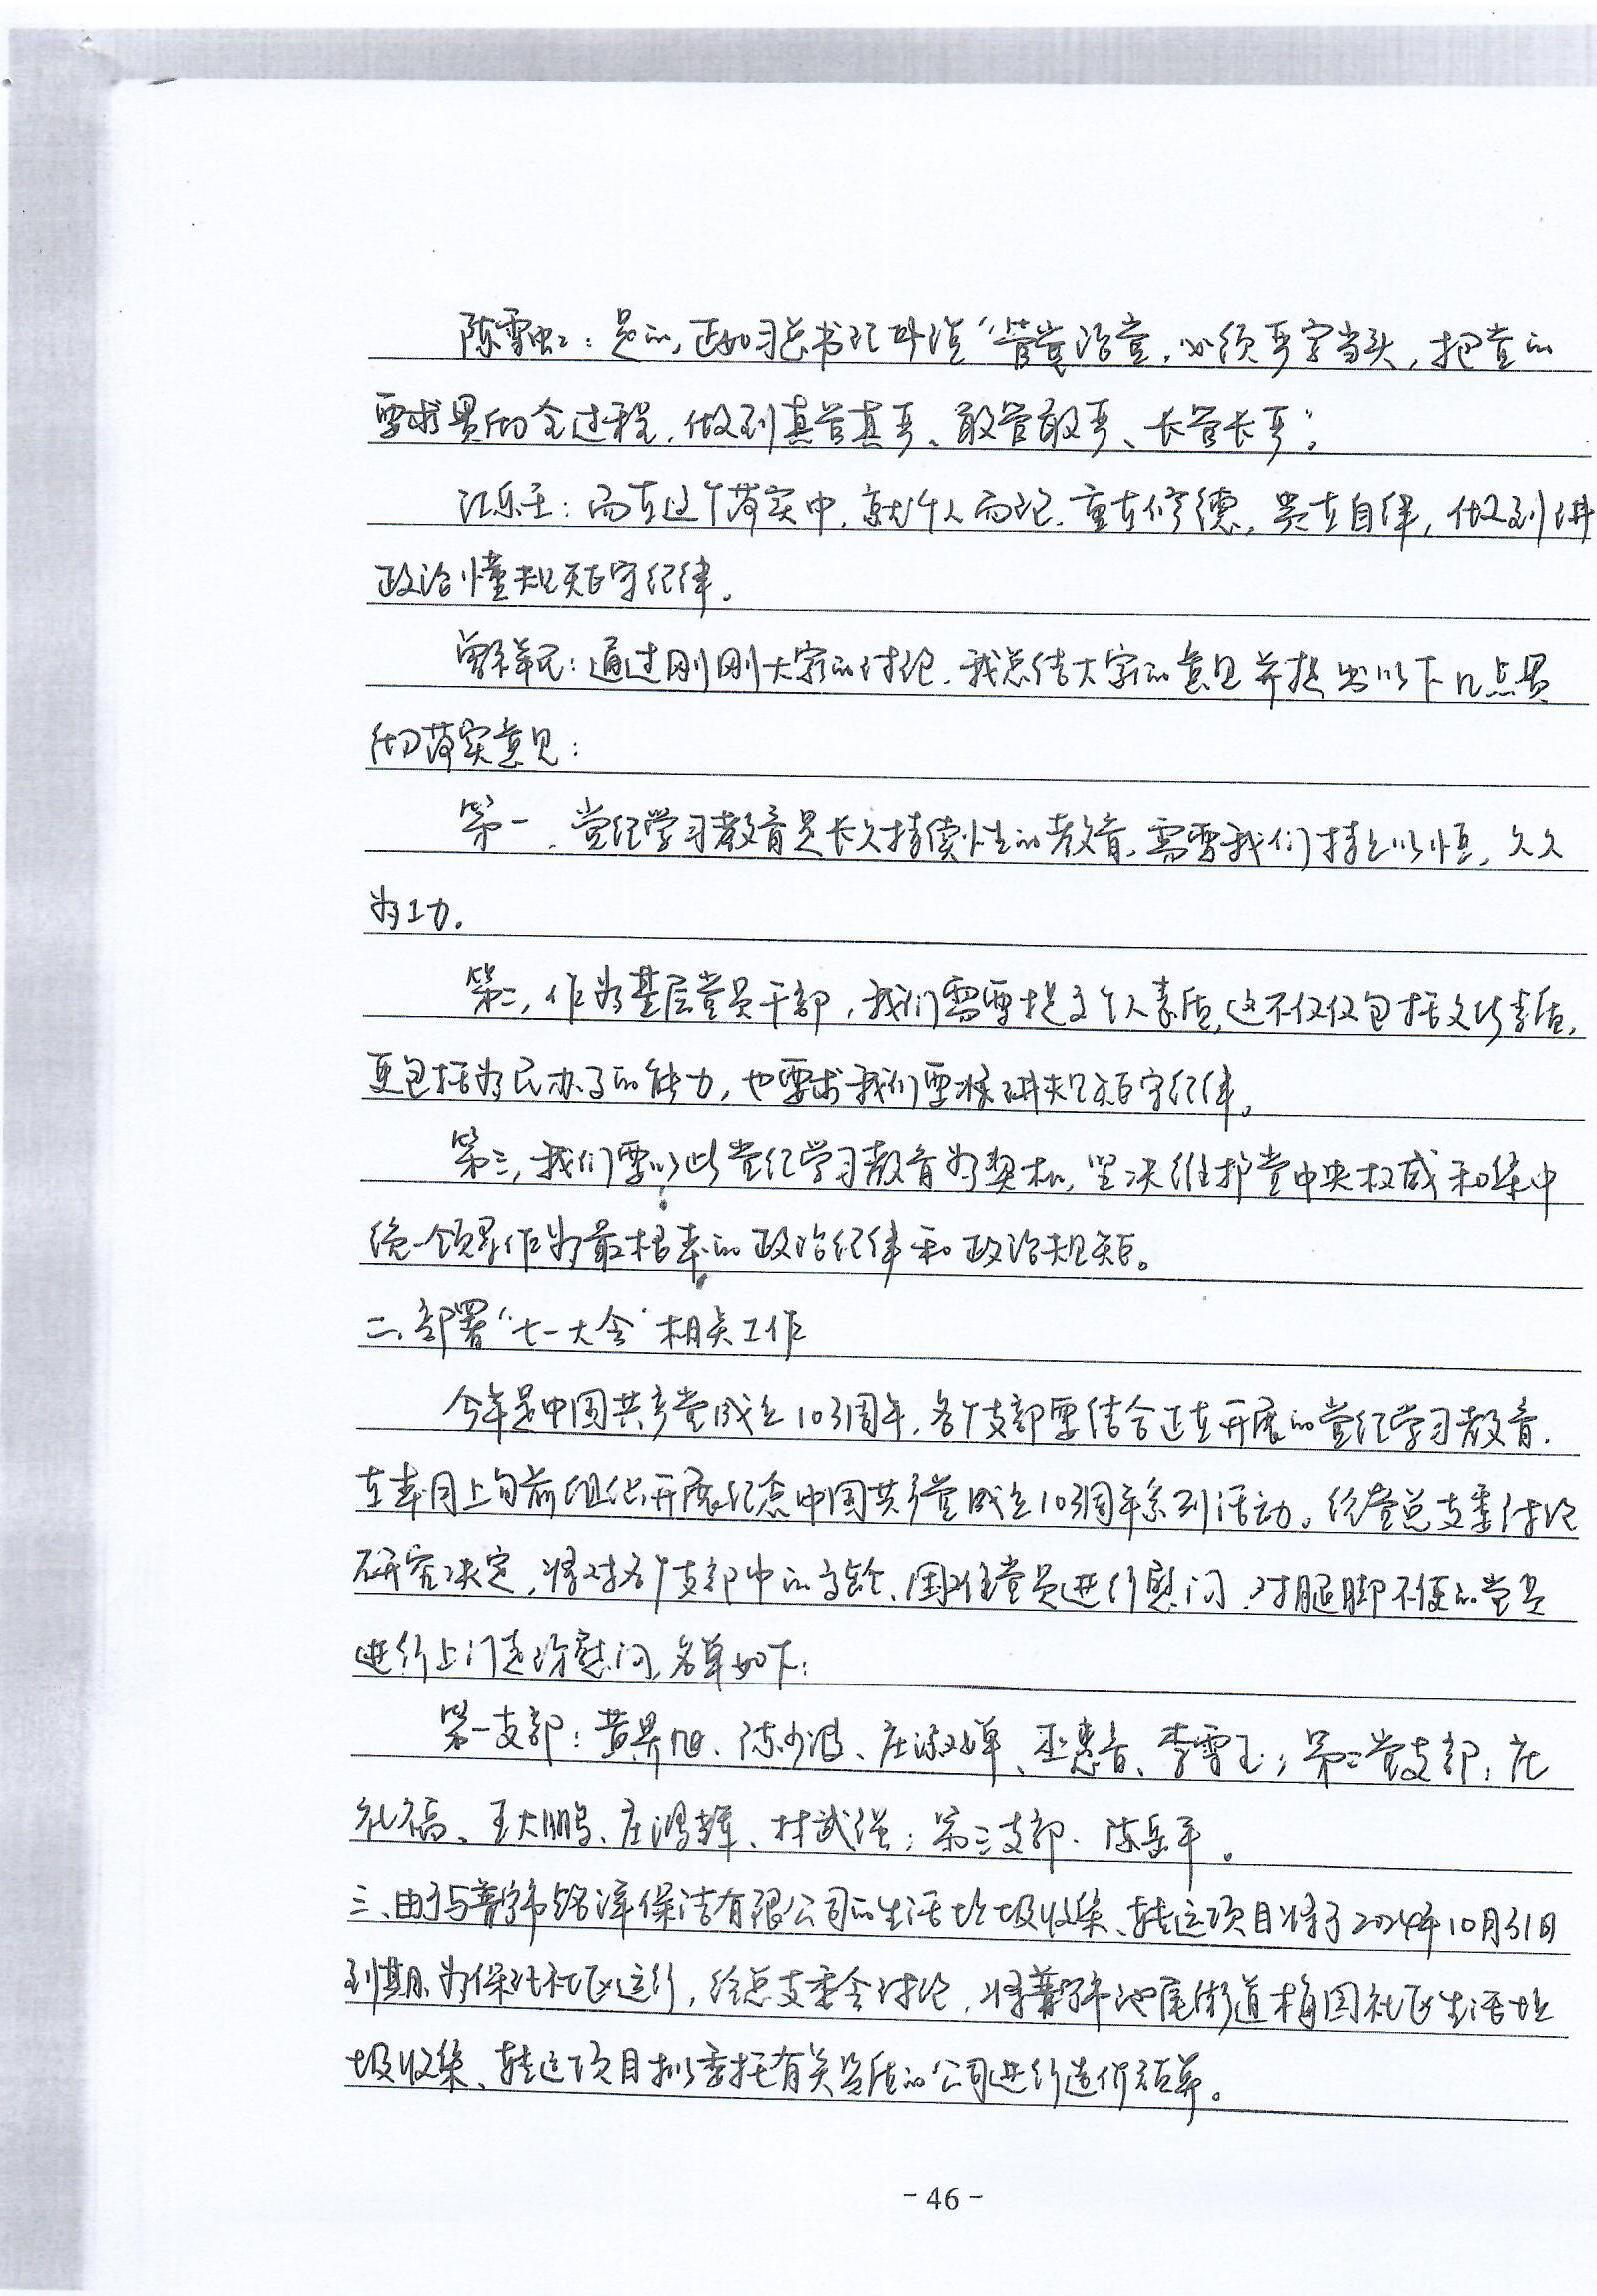 陈雪虹：是的，正如习总书记所说“管党治党，必须严字当头，把严的
要求贯彻全过程，做到真管真严、敢管敢严、长管长严”。
江乐玉：而在这个落实中，就个人而论，重在修德，贵在自律，做到讲
政治懂规矩守纪律。
曾祥元：通过刚刚大家的讨论，我总结大家的意见并提出以下几点贯
彻落实意见：
第一，党纪学习教育是长久持续性的教育，需要我们持之以恒，久久
为功。
第二，作为基层党员干部，我们需要提高个人素质，这不仅仅包括文化素质，
更包括为民办事的能力，也要求我们要懂讲规矩守纪律。
第三，我们要以此党纪学习教育为契机，坚决维护党中央权威和集中
统一领导作为最根本的政治纪律和政治规矩。
二、部署“七一大会”相关工作
今年是中国共产党成立103周年，各个支部要结合正在开展的党纪学习教育，
在本月上旬前组织开展纪念中国共产党成立103周年系列活动。经党总支委讨论
研究决定，将对各个支部中的高龄、困难党员进行慰问，对腿脚不便的党员
进行上门走访慰问，名单如下：
第一支部：黄昇旭、陈少鸿、庄淑婵、巫惠音、李雪玉；第二党支部：庄
礼福、王大鹏、庄鸿辉、林武强；第三支部：陈岳平。
三、由于与普宁市铭洋保洁有限公司的生活垃圾收集、转运项目将于2024年10月31日
到期，为保证社区运行，经总支委会讨论，将普宁市池尾街道梅园社区生活垃
圾收集、转运项目拟委托有关资质的公司进行造价预算。
- 46 -